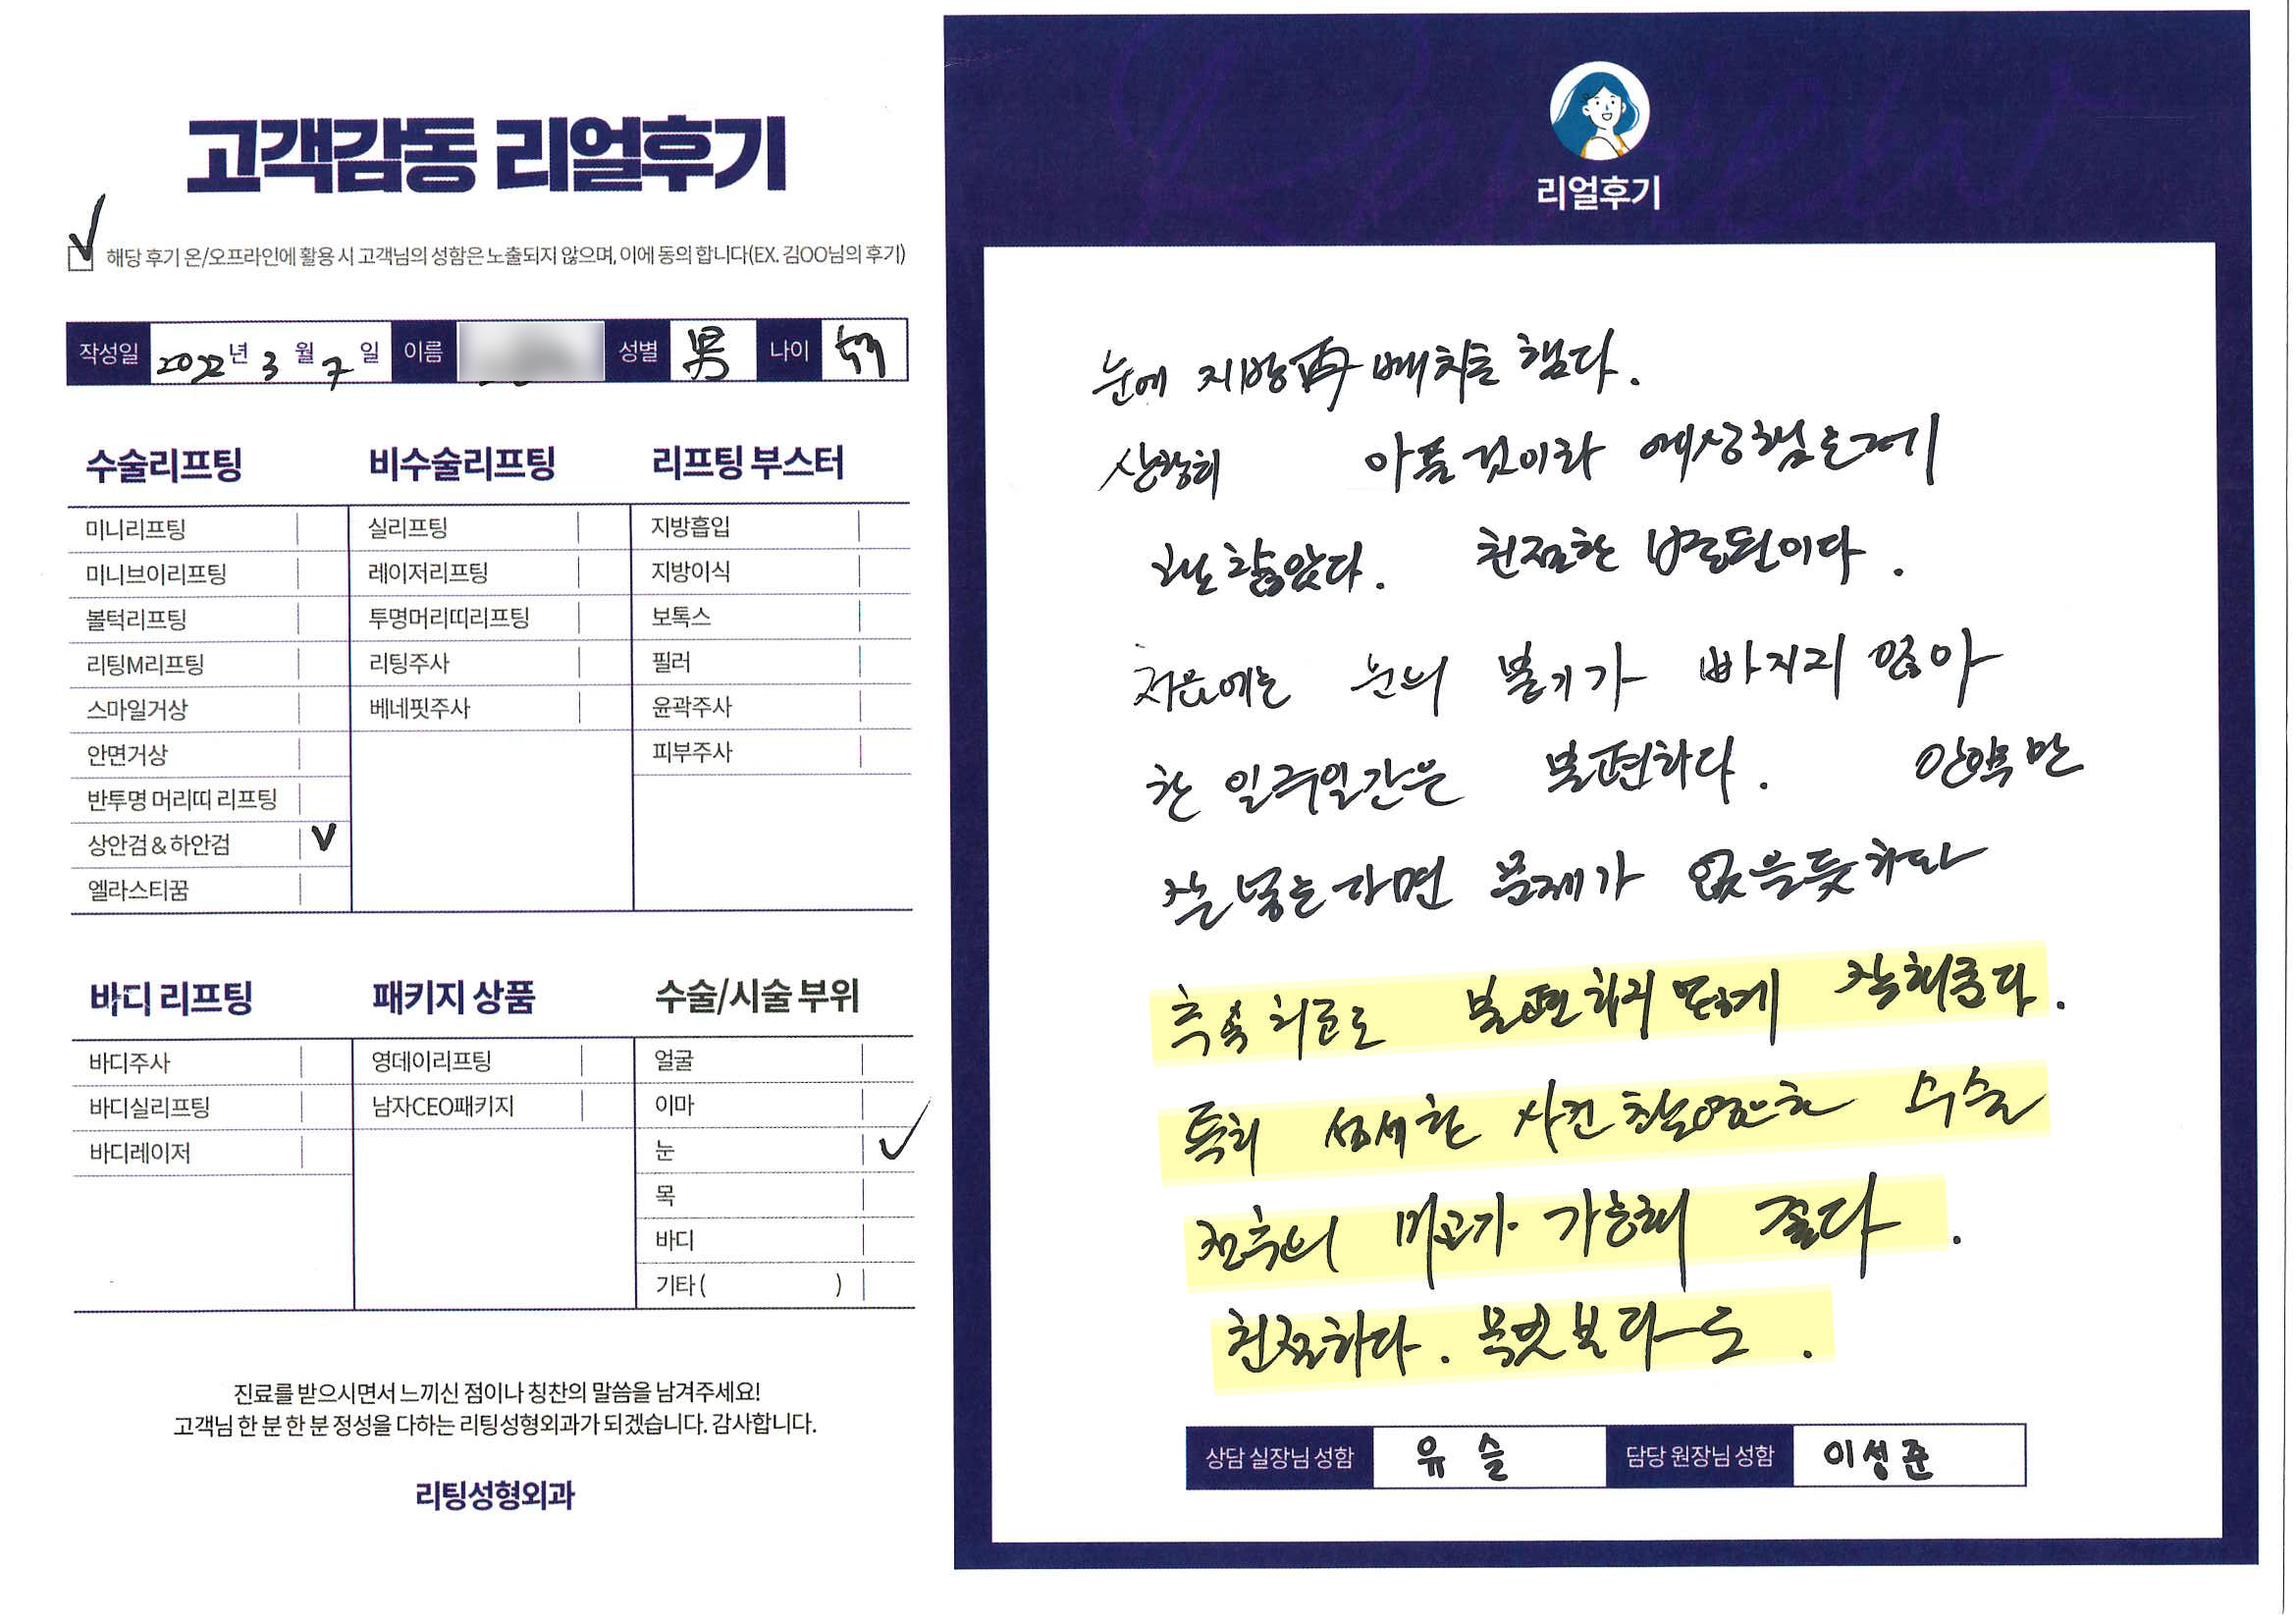 고객감동 리얼후기
해당 후기 온/오프라인에 활용 시 고객님의 성함은 노출되지 않으며, 이에 동의 합니다(EX. 김OO님의 후기)
작성일 2022년 3월 7일 이름 성별 男 나이
수술리프팅
미니리프팅
미니브이리프팅
볼턱리프팅
리팅M리프팅
스마일거상
안면거상
반투명 머리띠 리프팅
상안검 & 하안검 V
엘라스티꿈
비수술리프팅
실리프팅
레이저리프팅
투명머리띠리프팅
리팅주사
베네핏주사
리프팅 부스터
지방흡입
지방이식
보톡스
필러
윤곽주사
피부주사
바디 리프팅
바디주사
바디실리프팅
바디레이저
패키지 상품
영데이리프팅
남자CEO패키지
수술/시술 부위
얼굴
이마
눈
목
바디
기타 ( )
진료를 받으시면서 느끼신 점이나 칭찬의 말씀을 남겨주세요!
고객님 한 분 한 분 정성을 다하는 리팅성형외과가 되겠습니다. 감사합니다.
리팅성형외과
리얼후기
눈에 지방再배치를 했다.
상당히 아플것이라 예상했는데
괜찮았다. 친절한 병원이다.
처음에는 눈의 붓기가 빠지지 않아
한 일주일간은 불편하다. 안약만
잘 넣는다면 문제가 없을듯하다
후속 치료도 불편하지 않게 잘해준다.
특히 섬세한 사진촬영으로 수술
전후의 비교가 가능해 좋다.
친절하다. 무엇보다도.
상담 실장님 성함 유 슬 담당 원장님 성함 이성준